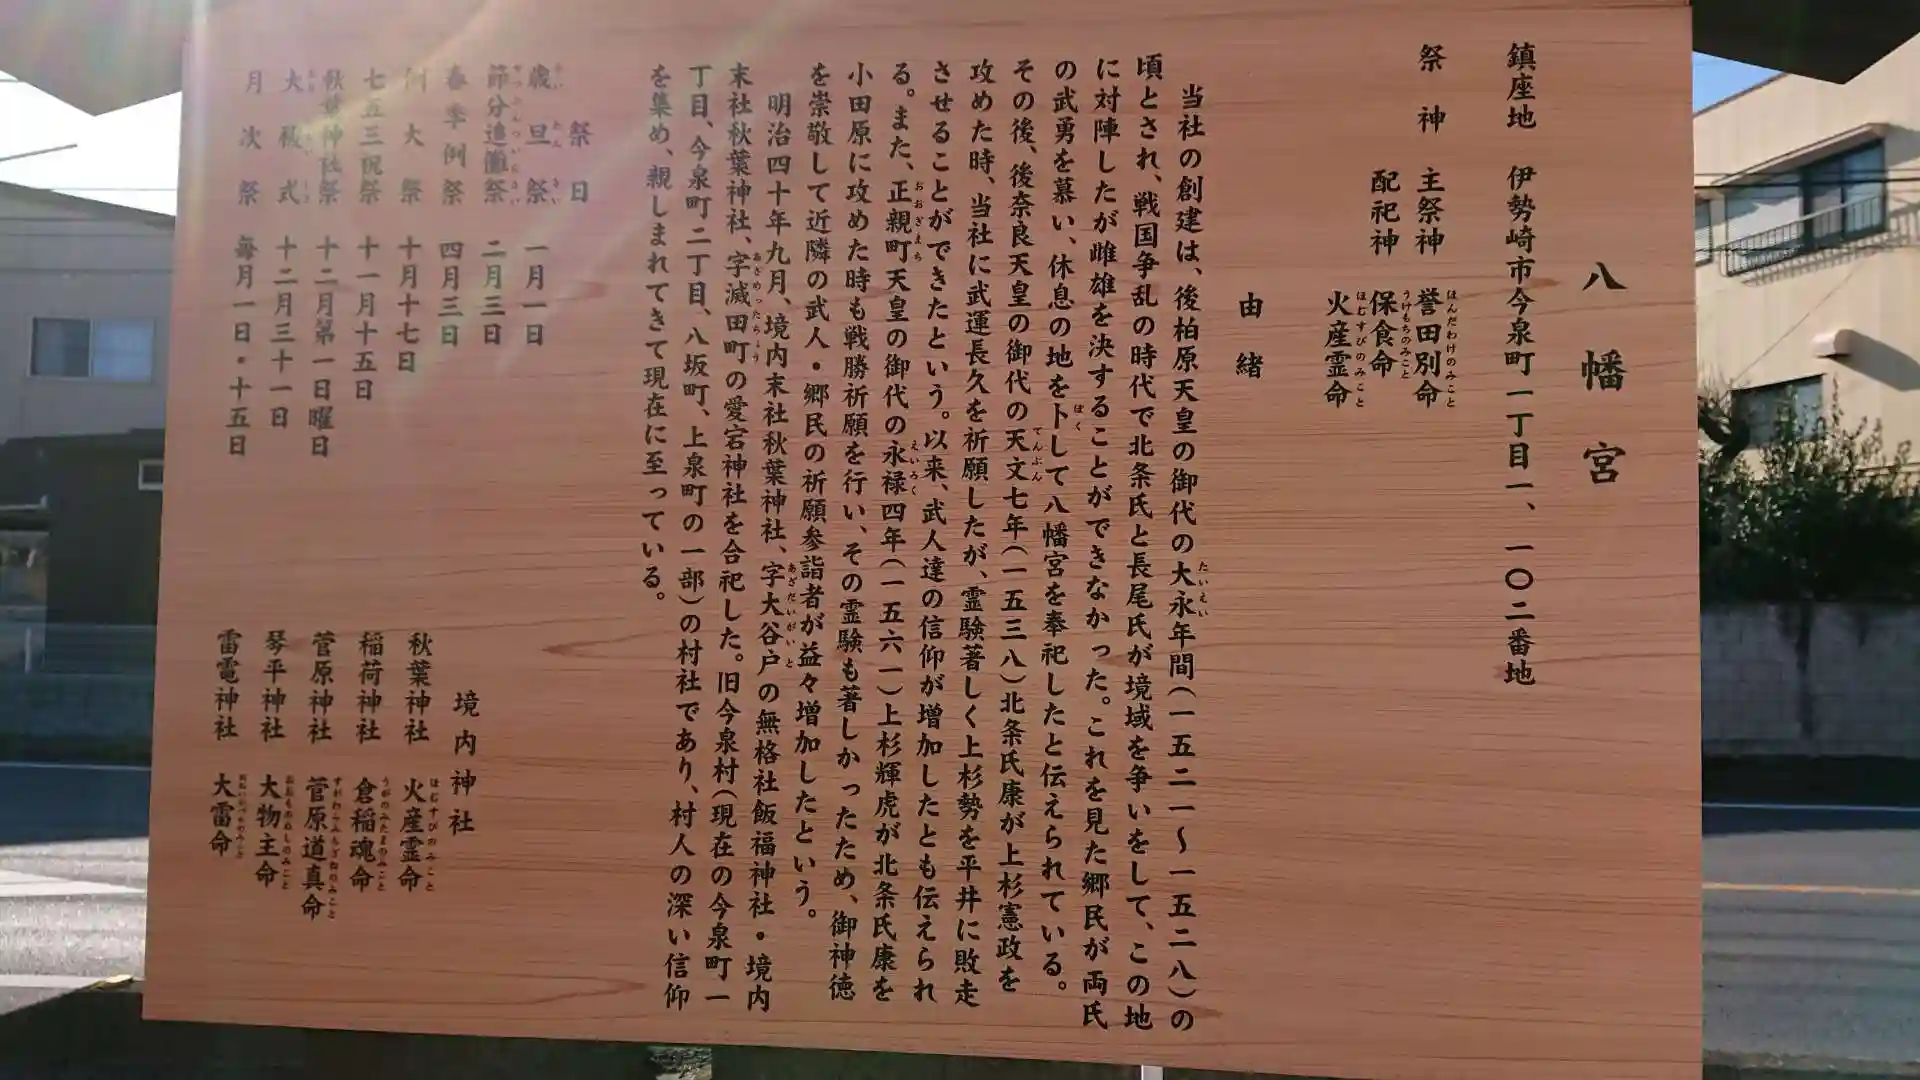 八幡宮
鎮座地　伊勢崎市今泉町一丁目一、一〇二番地
祭　神　主祭神　誉田別命
ほんだわけのみこと
配祀神　保食命
うけもちのみこと
火産霊命
ほむすびのみこと
由緒
当社の創建は、後柏原天皇の御代の大永年間(一五二一～一五二八)の
たいえい
頃とされ、戦国争乱の時代で北条氏と長尾氏が境域を争いをして、この地
に対陣したが雌雄を決することができなかった。これを見た郷民が両氏
の武勇を慕い、休息の地を卜して八幡宮を奉祀したと伝えられている。
ぼく
その後、後奈良天皇の御代の天文七年(一五三八)北条氏康が上杉憲政を
てんぶん
攻めた時、当社に武運長久を祈願したが、霊験著しく上杉勢を平井に敗走
させることができたという。以来、武人達の信仰が増加したとも伝えられ
る。また、正親町天皇の御代の永禄四年(一五六一)上杉輝虎が北条氏康を
おおぎまち　えいろく
小田原に攻めた時も戦勝祈願を行い、その霊験も著しかったため、御神徳
を崇敬して近隣の武人・郷民の祈願参詣者が益々増加したという。
明治四十年九月、境内末社秋葉神社、字大谷戸の無格社飯福神社・境内
あざだいがいと
末社秋葉神社、字滅田町の愛宕神社を合祀した。旧今泉村(現在の今泉町一
あざめったちょう
丁目、今泉町二丁目、八坂町、上泉町の一部)の村社であり、村人の深い信仰
を集め、親しまれてきて現在に至っている。
祭日
歳旦祭　一月一日
さいたんさい
節分追儺祭　二月三日
せつぶんついなさい
春季例祭　四月三日
例大祭　十月十七日
七五三祝祭　十一月十五日
秋葉神社祭　十二月第一日曜日
大祓式　十二月三十一日
月次祭　毎月一日・十五日
境内神社
秋葉神社　火産霊命
ほむすびのみこと
稲荷神社　倉稲魂命
うがのみたまのみこと
菅原神社　菅原道真命
すがわらみちざねのみこと
琴平神社　大物主命
おおものぬしのみこと
雷電神社　大雷命
おおいかづちのみこと